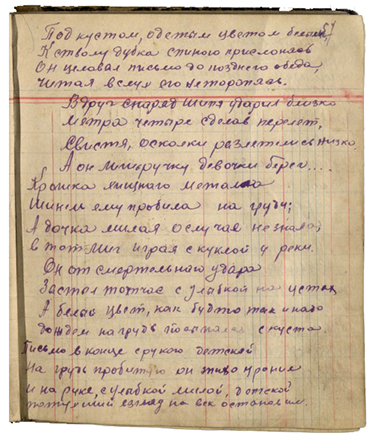 Под кустом, одетым цветом белым,
К стволу дубка спиною прислонясь
Он целовал письмо до позднего обеда,
Читая вслух его не торопясь.
Вдруг снаряд шипя ударил близко
Метра четыре сделав перелет,
Свистя, осколки разлетелись низко
А он ручку девочки берег....
Крошка хищного металла
Шинель ему пробила на груди;
А дочка милая о случае не знала
в тот миг играя с куклой у реки.
Он от смертельного удара
Застыл тотчас с улыбкой на устах
А белый цвет, как будто так и надо
дождем на грудь посыпался с куста.
Письмо в конце с рукою детской
на грудь пробитую он тихо уронил
и на руке, с улыбкой милой, детской
потухший взгляд на век остановил.